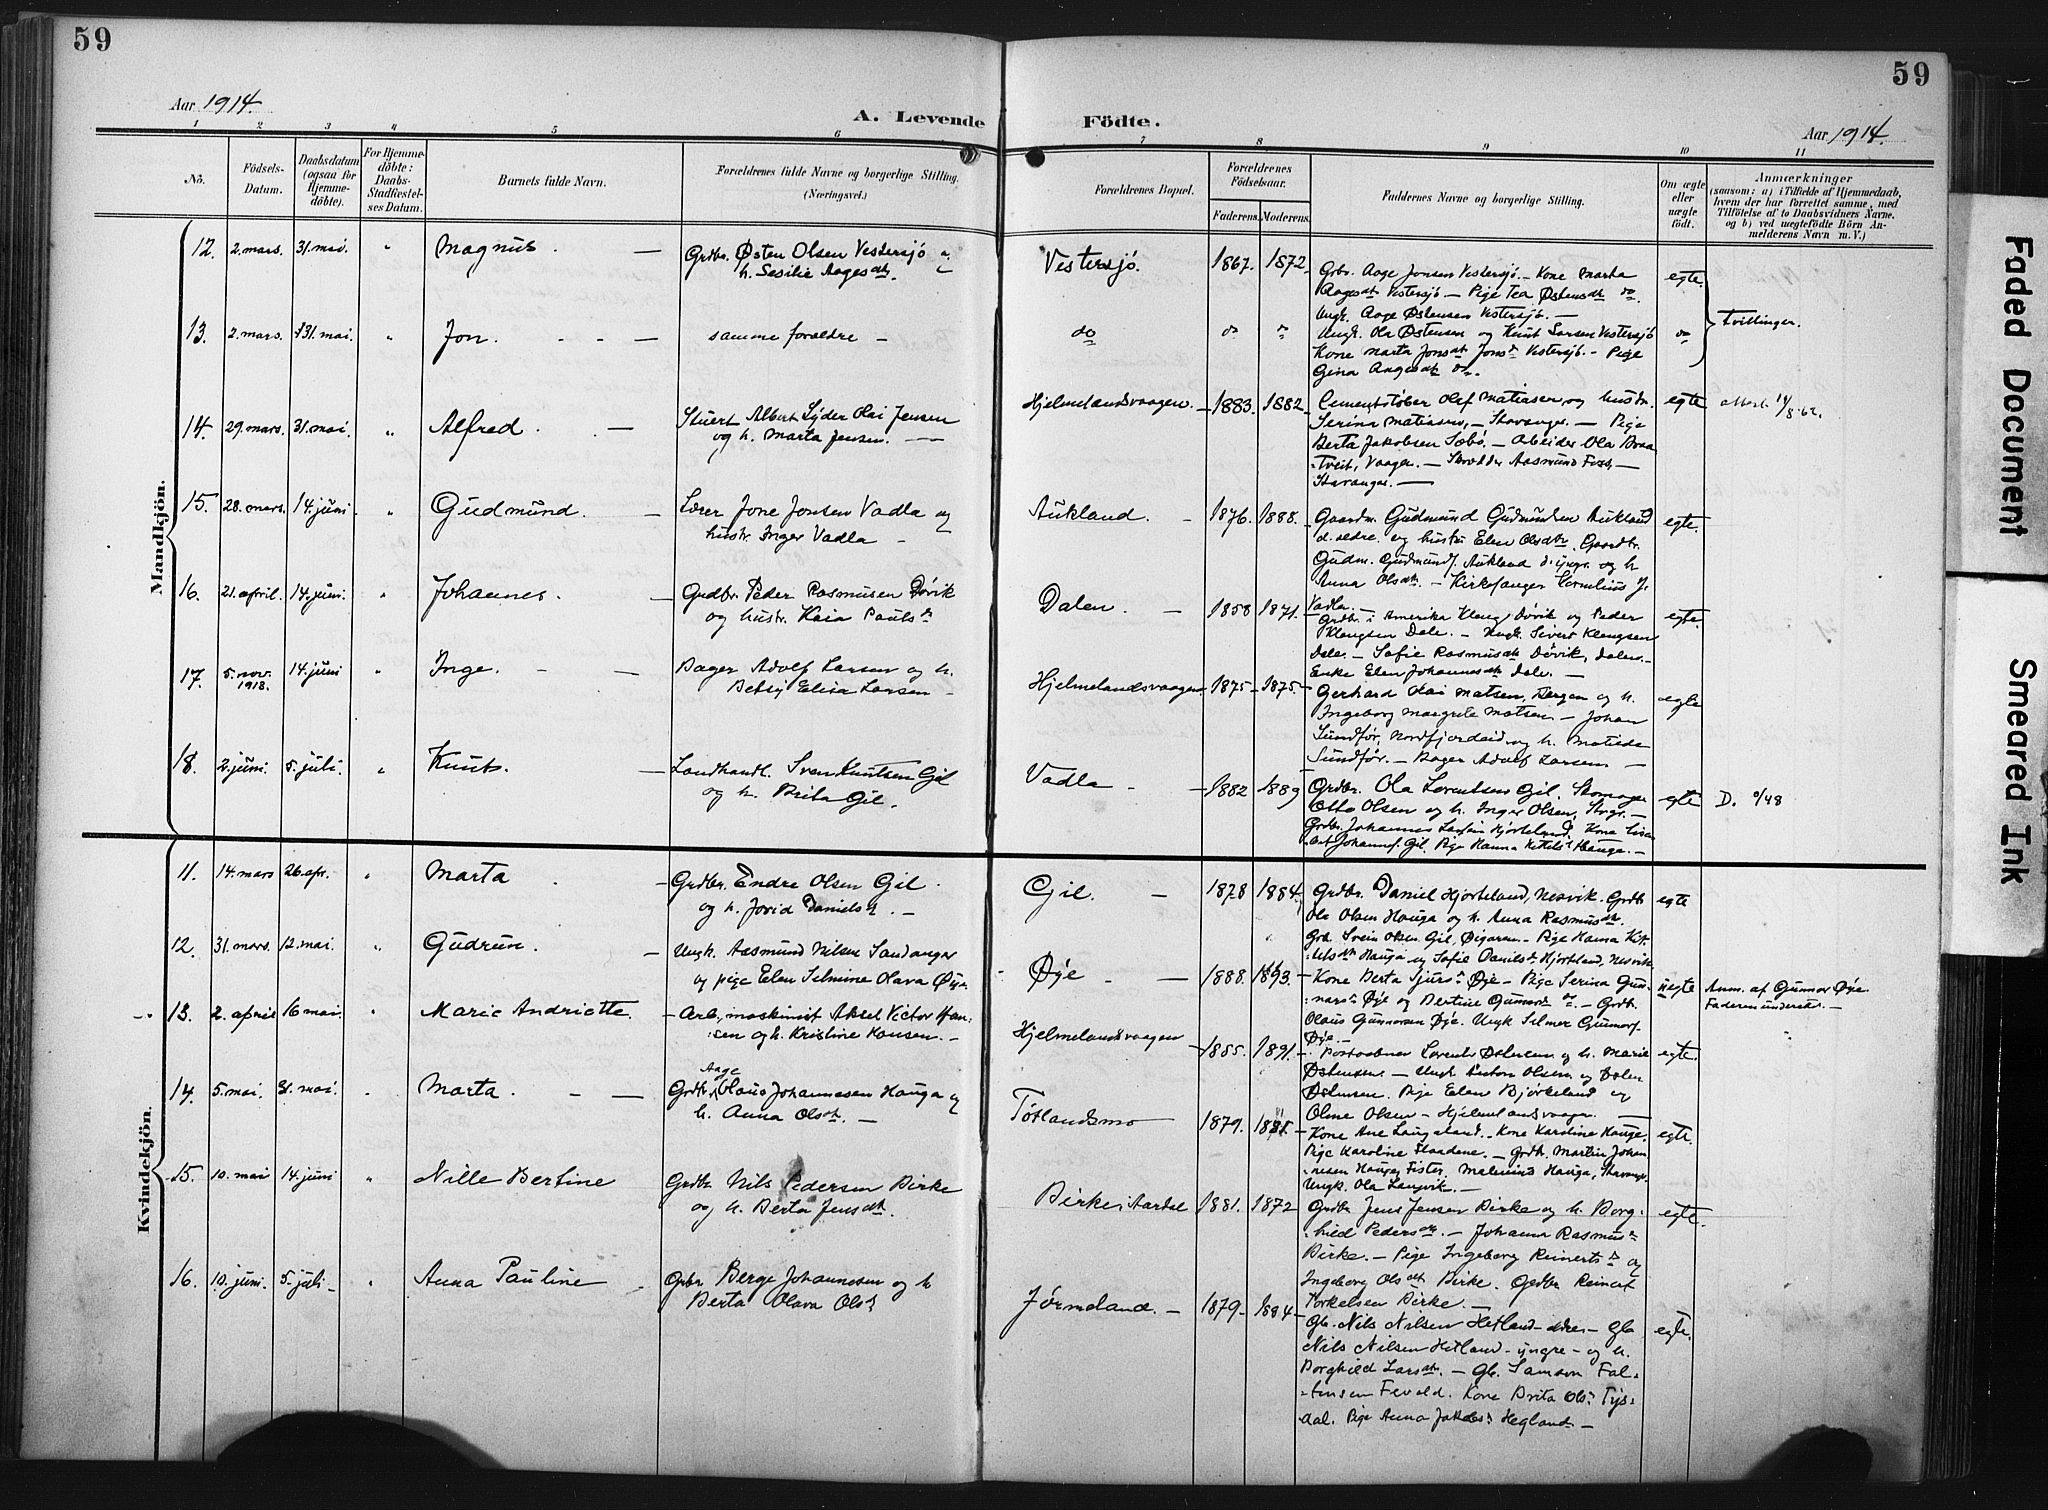 59
59
Aar 1914.
A. Levende
Födte.
Aar 1914.
1 2 3 4 5 6 7 8 9 10 11
Nö.
Födsels-
Datum.
Daabsdatum
(ogsaa for
Hjemme-
döbte).
For Hjemme-
döbte:
Daabs-
Stadfæstel-
ses Datum.
Barnets fulde Navn.
Forældrenes fulde Navne og borgerlige Stilling.
(Næringsvei.)
Forældrenes Bopæl.
Forældrenes
Födselsaar.
Faderens. Moderens.
Faddernes Navne og borgerlige Stilling.
Om ægte
eller
uægte
födt.
Anmærkninger
(saasom: a) i Tilfælde af Hjemmedaab,
hvem der har forrettet samme, med
Tilföielse af to Daabsvidners Navne.
og b) ved uægtefödte Börn An-
melderens Navn m. V.)
Mandkjön.
12. 2. mars. 31. mai. " Magnus. —
Grdbr. Østen Olsen Vestersjö
h. Sesilie Aagesdtr.
Vestersjö. 1867. 1872.
Grbr. Aage Jonsen Vestersjö. — Kone Marta
Aagesdtr Vestersjö — Pige Tea Østensdtr do.
Ungk. Aage Østensen Vestersjö. —
egte
13. 2. mars. 31. mai. " Jon. —
samme forældre —
do
Ungk. Ola Østensen og Knut Larsen Vestersjö
Kone Marta Jonsdtr Vestersjö. — Pige
Gina Aagesdtr do.
Tvillinger.
14. 29. mars. 31. mai. " Alfred. —
Stuert Albert Syder Olai Jensen
og h. Marta Jensen. —
Hjelmelandsvaagen. 1883. 1882.
Cementstöber Olef Matiasen og husdr.
Serina Matiasen, — Stavanger. — Pige
Berta Jakobsen Sæbö. — Arbeider Ola Braa-
tveit, Vaagen. — Skrædder Aasmund Foss —
Stavanger. —
egte
15. 28. mars. 14. juni " Gudmund. —
Lærer Jone Jonsen Vadla og
hustr. Inger Vadla —
Aukland. — 1876. 1888.
Gaardm. Gudmund Gudmundsen Aukland
d. eldre. og hustru Elen Olsdtr. Gaardbr.
Gudm. Gudmunds. Aukland d. yngr. og h
Anna Olsdtr. — Kirkesanger Kornelius J.
Vadla. —
egte.
16. 21. april. 14. juni. " Johannes. —
Grdbr. Peder Rasmusen Døvik
og hustr. Kaia Pauls
Dalen. — 1858 1871.
Grdbr. i Amerika Klaug Dövik og Peder
Klaugsen Dale. — Ungk. Sivert Klaugsen
Dale. — Sofie Rasmusdtr Dövik, Dalen. —
Enke Elen Johannesdtr Dale. —
egte.
17. 5. nov. 1913. 14. juni " Inge. —
Bager Adolf Larsen og h.
Betsy Elisa Larsen —
Hjelmelandsvaagen 1875 — 1875. —
Gerhard Olai Matsen, Bergen og h.
Ingeborg Margrete Matsen — Johan
Sundför, Nordfjordeid og h. Matilde
Sundför. — Bager Adolf Larsen. —
egte
18. 2. juni. 5. juli. " Knut. —
Landhandl. Sven Knutsen Gil
og h. Brita Gil.
Vadla — 1882 1889
Grdbr. Ola Lorentsen Gil,
Otto Olsen og h. Inger Olsen,
Grdbr. Johannes Larsen Hjorteland. Kone
Johannes. Gil. Pige Hanna Kittels Hauge. —
egte D. 0/48
Kvindekjön.
11. 14. mars 26. apr. " Marta. —
Grdbr. Endre Olsen Gil.
og h. Jorid Daniels. —
Gil. — 1878 1884
Grdbr. Daniel Hjorteland, Nesvik. Grdb
Ola Olsen Hauga og h. Anna Rasmusdtr.
Grb. Svein Olsen Gil, Øigaren. — Pige Hanna Kit-
telsdtr Hauga og Sofie Daniels. Hjorteland, Nesvik
egte
12. 31. mars. 12. mai. " Gudrun. —
Ungk. Aasmund Nilsen Sandanger
og pige Elen Selmine Olava Øye
Øye — 1888. 1893.
Kone Berta Sjurs Øye — Pige Serina Gun-
nars Øye og Bertine Gunars do — Grdb.
Olaus Gunnarsen Øye. Ungk Selmer Gunnars.
Øye. —
uegte Anm. af Gunnar Øye.
Faderen underskr. —
13. 2. april 16 mai. " Marie Andriette. —
Arb. maskinist Aksel Victor Han-
sen og h. Kristine Hansen. —
Hjelmelandsvaagen 1885. 1891.
Postaabner Lorents Østensen og h. Marie
Østensen — Ungk Anton Olsen og
Østensen. Pige Elen Bjørkeland og
Olene Olsen — Hjelmelandsvaagen. —
egte.
14. 5. mai. 31. mai. " Marta. —
Aage
Grdb. Olaus Johannesen Hauga og
h. Anna Olsdtr. —
Tøtlandsmo 1879.
Kone Ane Laugaland. Kone Karoline Hauge.
Pige Karoline Haadene. — Grdb. Martin Johan-
nesen Hauge, Fister. Malmind Hauga,
Ungk. Ola Langvik. —
egte.
15. 10. mai 14. juni " Nille Bertine
Grdb Nils Pedersen Birke
og h. Berta Jensdtr.
Birke, Aardal 1881. 1872
Grdb Jens Jensen Birke og h. Borg-
hild Pedersdtr. — Johanna Rasmus
Birke. — Pige Ingeborg Reinerts og
Ingeborg Olsdtr Birke. Grdbr Reinert
Torkelsen Birke. —
egte.
16. 10. juni. 5. juli — " Anna Pauline
Grbr Berge Johannesen og h
Berta Olava Ols
Jørmeland. — 1879 — 1884 —
Gb. Nils Nilsen Hetland — eldre — Gb
Nils Nilsen Hetland — yngre — og h.
Borghild Larsdtr. — Gb. Samson Fal-
tinsen Fevold. Kone Brita Ols Tys-
dal. Pige Anna Jakobs Hegland —
egte.
Faded Document
Smeared Ink